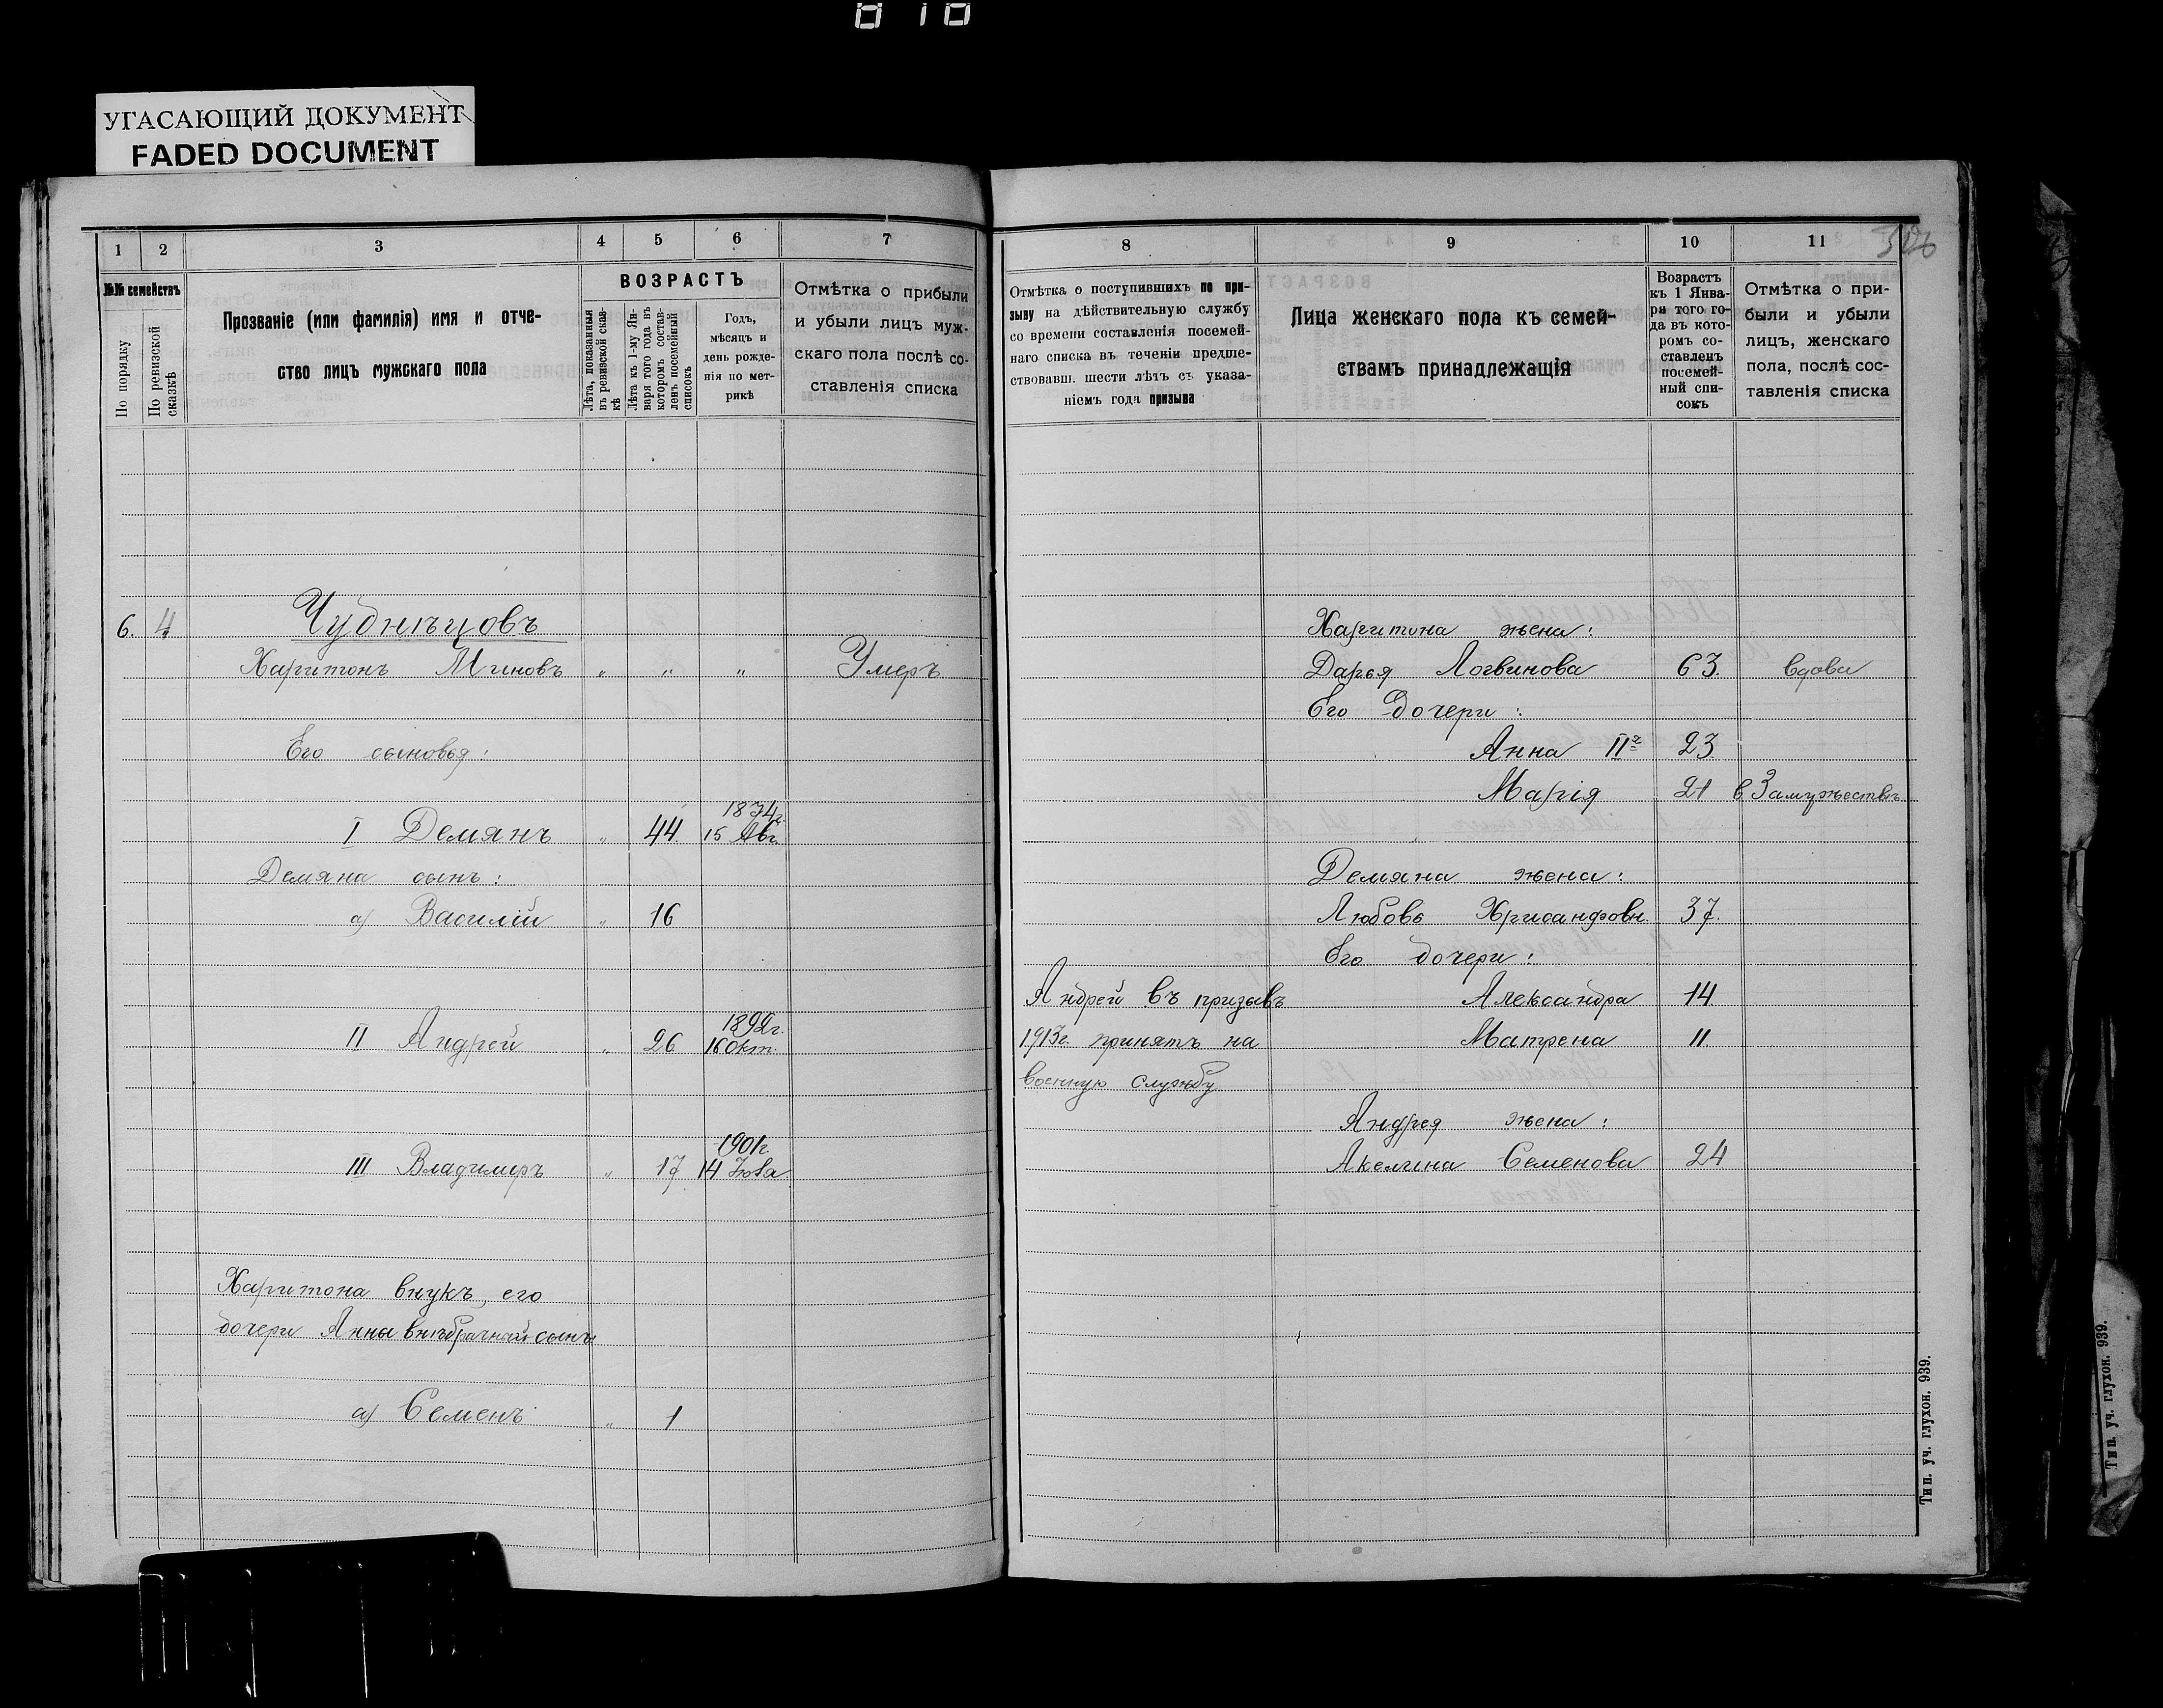 УГАСАЮЩИЙ ДОКУМЕНТ
FADED DOCUMENT
1 2 3 4 5 6 7
№№ семействъ
По порядку
По ревизской сказкѣ
Прозваніе (или фамилія) имя и отче-
ство лицъ мужскаго пола
ВОЗРАСТЪ
Лѣта, показанныя въ ревизской сказ-кѣ
Лѣта къ 1-му Ян-варя того года въ которомъ состав-ленъ посемейный списокъ
Годъ,
мѣсяцъ и
день рожде-
нія по мет-
рикѣ
Отмѣтка о прибыли
и убыли лицъ муж-
скаго пола послѣ со-
ставленія списка
6. 4 Чуднѣцовъ
Харитонъ Миновъ " " " Умеръ
Его сыновья:
1874г.
I Демянъ " 44. 15 Авг.
Демяна сынъ:
а) Василій " 16
1892г.
II Андрей " 26 16 Окт.
1901г.
III Владимиръ " 17 14 Іюля
Харитона внукъ, его
дочери Анны внѣбрачный сынъ
а) Семенъ " 1
8 9 10 11
Отмѣтка о поступившихъ по при-
зыву на дѣйствительную службу
со времени составленія посемей-
наго списка въ теченіи предше-
ствовавш. шести лѣтъ съ указа-
ніемъ года призыва
Лица женскаго пола къ семей-
ствамъ принадлежащія
Возрастъ
къ 1 Янва-
ря того го-
да въ кото-
ромъ со-
ставленъ
посемей-
ный спи-
сокъ
Отмѣтка о при-
были и убыли
лицъ, женскаго
пола, послѣ сос-
тавленія списка
Харитона жена:
Дарья Логвинова 63. вдова
Его дочери:
Анна IIя 23.
Марія 21 в Замужествѣ
Демяна жена:
Любовь Хрисанфовн. 37.
Его дочери:
Андрей въ призывъ Александра 14
1913г. принятъ на Матрена 11
военную службу
Андрея жена:
Акелина Семенова 24
Тип. уч. глухон. 939.
Тип. уч. глухон. 939.